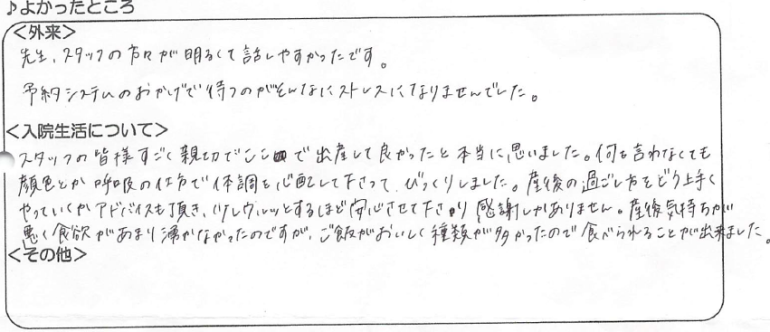 ♪よかったところ
<外来>
先生、スタッフの方々が明るくて話しやすかったです。
予約システムのおかげで待つのがそんなにストレスになりませんでした。
<入院生活について>
スタッフの皆様すごく親切でここで出産して良かったと本当に思いました。何も言わなくても
顔色とか呼吸の仕方で体調を心配して下さって、びっくりしました。産後の過ごし方をどう上手く
やっていくかアドバイスも頂き、少しウルッとするほど安心させて下さり感謝しかありません。産後気持ちが
悪く食欲があまり湧かなかったのですが、ご飯がおいしく種類が多かったので食べられることが出来ました。
<その他>